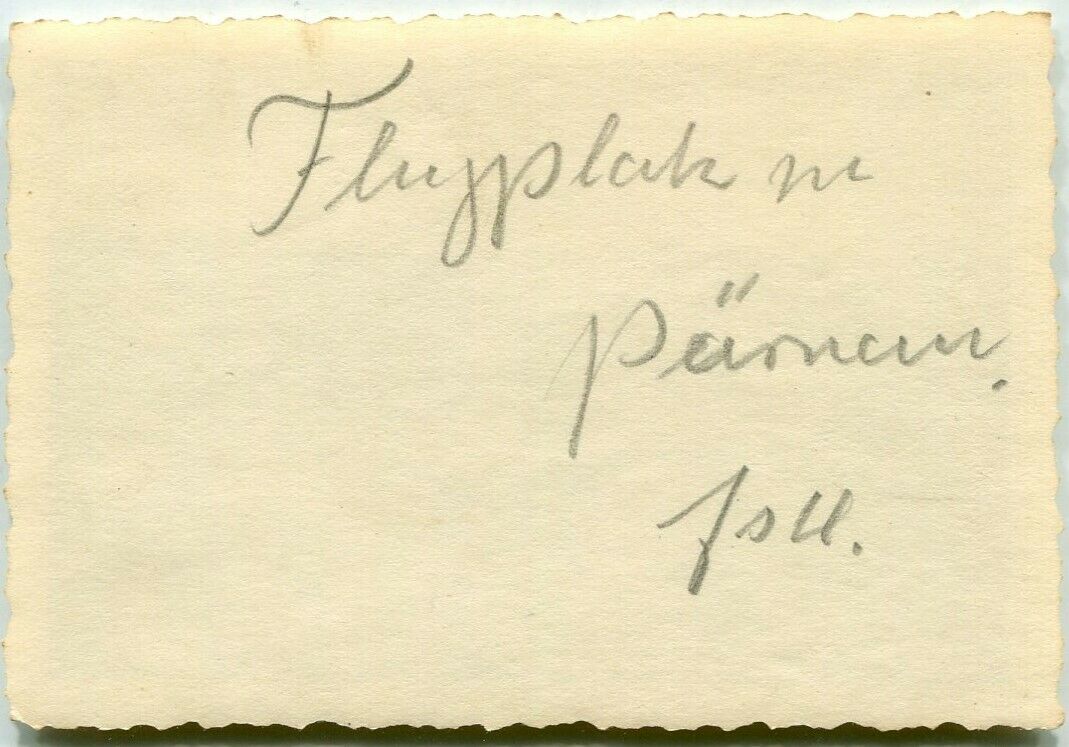 Flugplatz in
Pärnau.